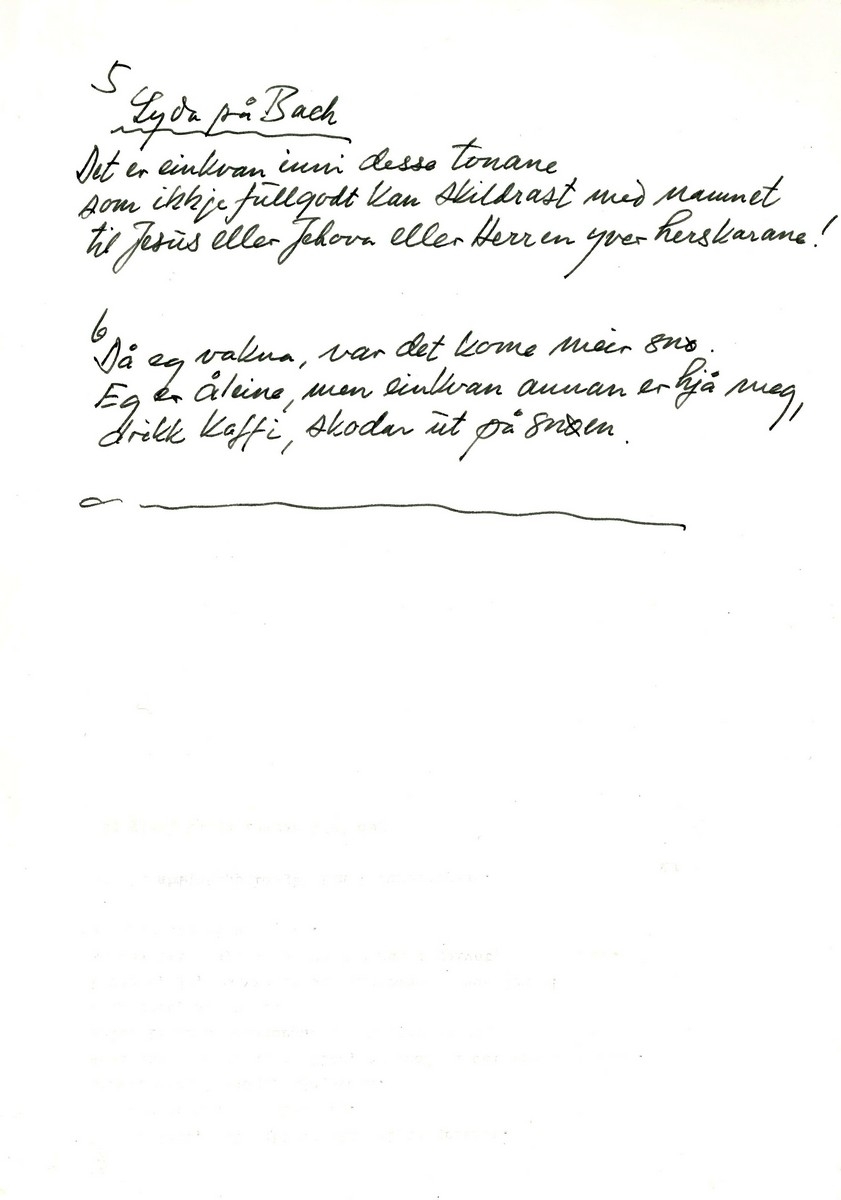 5
Lyda på Bach
Det er einkvan inni desse tonane
som ikkje fullgodt kan skildrast med namnet
til Jesus eller Jehova eller Herren yver herskarane!
6
Då eg vakna, var det kome meir snø.
Eg er åleine, men einkvan annan er hjå meg,
drikk kaffi, skodar ut på snøen.